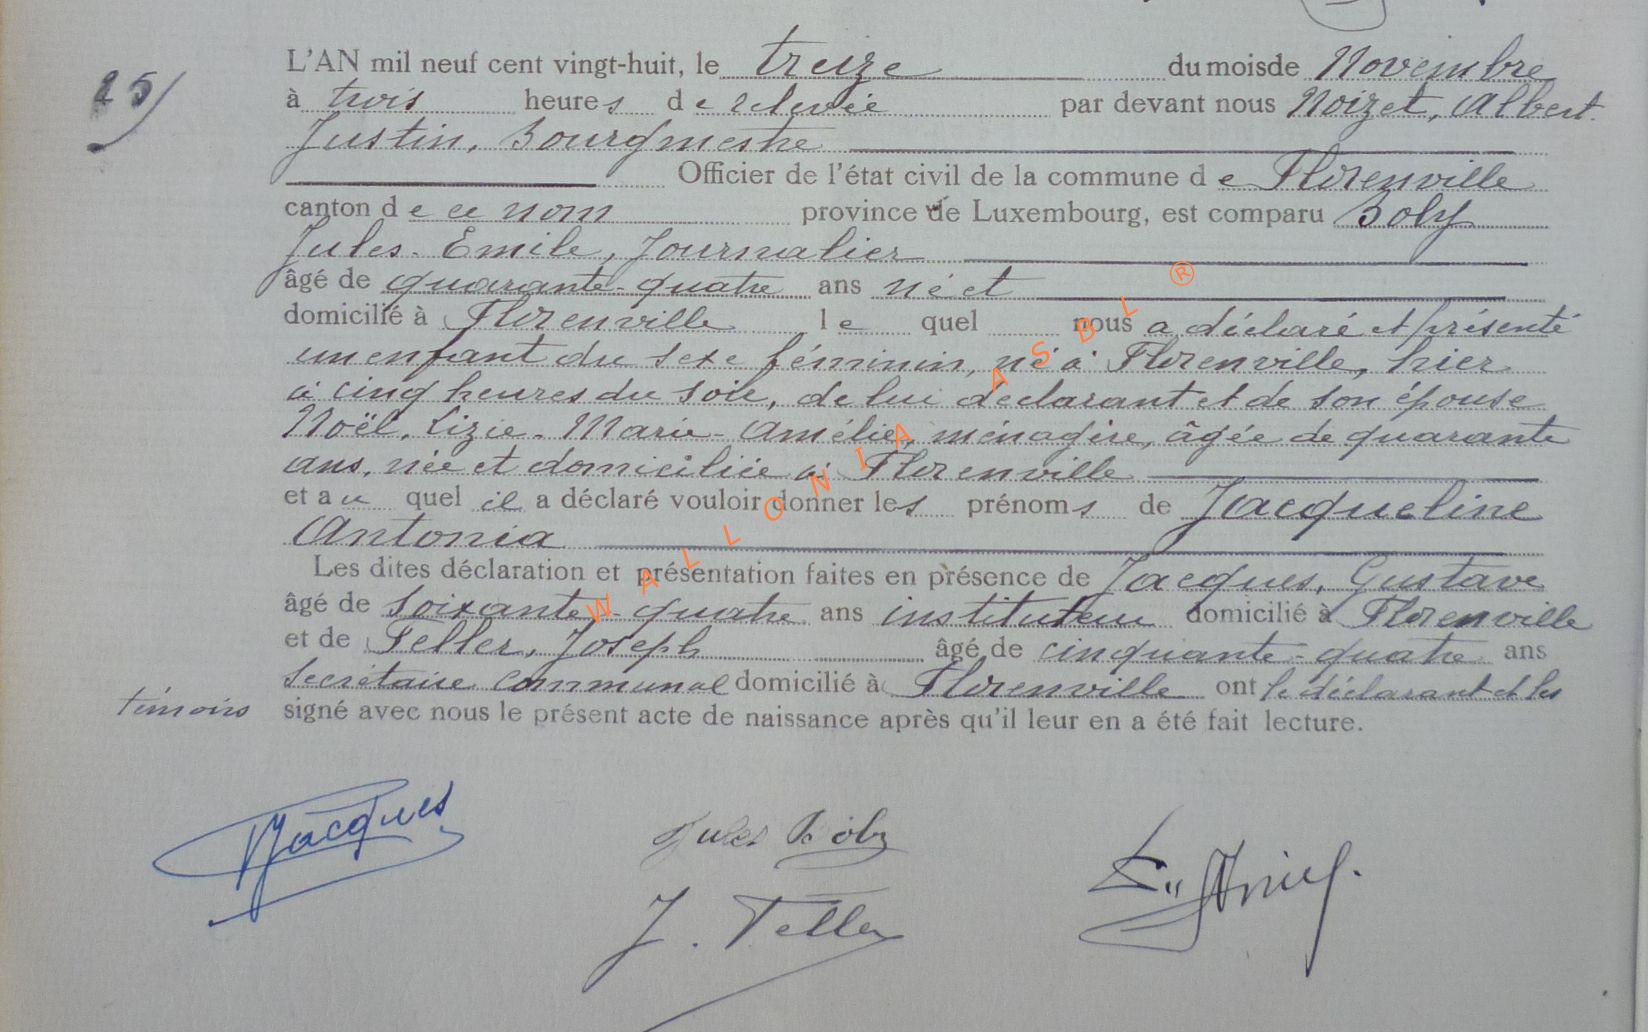 25/
L'AN mil neuf cent vingt-huit, le treize du mois de Novembre
à trois heures de relevée par devant nous Noizet, Albert.
Justin, Bourgmestre
Officier de l'état civil de la commune de Florenville
canton de ce nom province de Luxembourg, est comparu Boly
Jules-Emile, Journalier
âgé de quarante-quatre ans né et
domicilié à Florenville lequel nous a déclaré et présenté
un enfant du sexe féminin, né à Florenville, hier
à cinq heures du soir, de lui déclarant et de son épouse
Noël, Lizie-Marie-Amélie, ménagère, âgée de quarante
ans, née et domiciliée à Florenville
et au quel il a déclaré vouloir donner les prénoms de Jacqueline
Antonia
Les dites déclaration et présentation faites en présence de Jacques, Gustave
âgé de soixante-quatre ans instituteur domicilié à Florenville
et de Feller, Joseph âgé de cinquante-quatre ans
Secrétaire communal domicilié à Florenville ont le déclarant et les
témoins signé avec nous le présent acte de naissance après qu'il leur en a été fait lecture.
WALLONIA ASBL ®
Jacques
Jules Boly
J. Feller